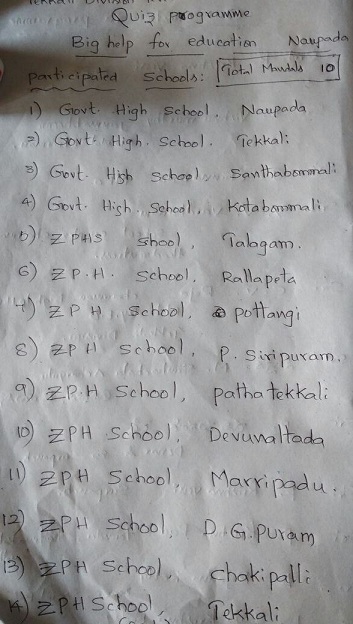 Quiz programme
Big help for education Naupada
participated Schools: Total Mandals 10
1) Govt. High School, Naupada
2) Govt. High. School. Tekkali
3) Govt. High School, Santhabommali
4) Govt. High. School, Kotabommali
5) ZPHS shool, Talagam.
6) Z P.H. School, Rallapeta
7) Z P H School, pottangi
8) ZP H School, P. Siripuram.
9) ZP.H School, patha tekkali
10) ZPH School, Devunaltada
11) ZPH School, Marripadu.
12) ZPH School, D.G. Puram
13) ZPH School, Chakipalli
14) ZPH School, Tekkali